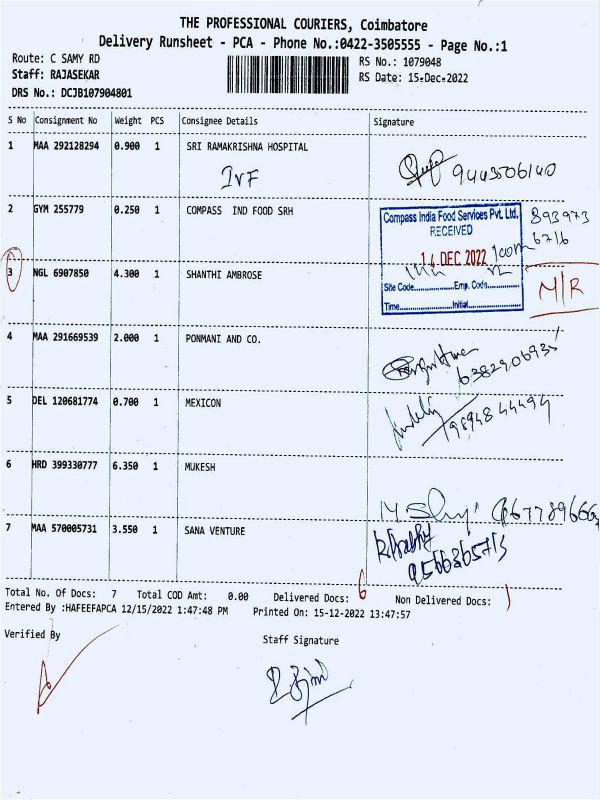 THE PROFESSIONAL COURIERS, Coimbatore
Delivery Runsheet - PCA - Phone No.:0422-3505555 - Page No.:1
Route: C SAMY RD
Staff: RAJASEKAR
DRS No.: DCJB107904801
RS No.: 1079048
RS Date: 15-Dec-2022
S No Consignment No Weight PCS Consignee Details Signature
1 MAA 292128294 0.900 1 SRI RAMAKRISHNA HOSPITAL
IVF
9443506140
2 GYM 255779 0.250 1 COMPASS IND FOOD SRH
Compass India Food Services Pvt. Ltd.
RECEIVED
14 DEC 2022
Site Code Emp. Code
Time Initial
893973
6716
3 NGL 6907850 4.300 1 SHANTHI AMBROSE
M/R
4 MAA 291669539 2.000 1 PONMANI AND CO.
5 DEL 120681774 0.700 1 MEXICON
9894844494
6 HRD 399330777 6.350 1 MUKESH
7 MAA 570005731 3.550 1 SANA VENTURE
9566365713
Total No. Of Docs: 7 Total COD Amt: 0.00 Delivered Docs: 6 Non Delivered Docs: 1
Entered By :HAFEEFAPCA 12/15/2022 1:47:48 PM Printed On: 15-12-2022 13:47:57
Verified By
Staff Signature